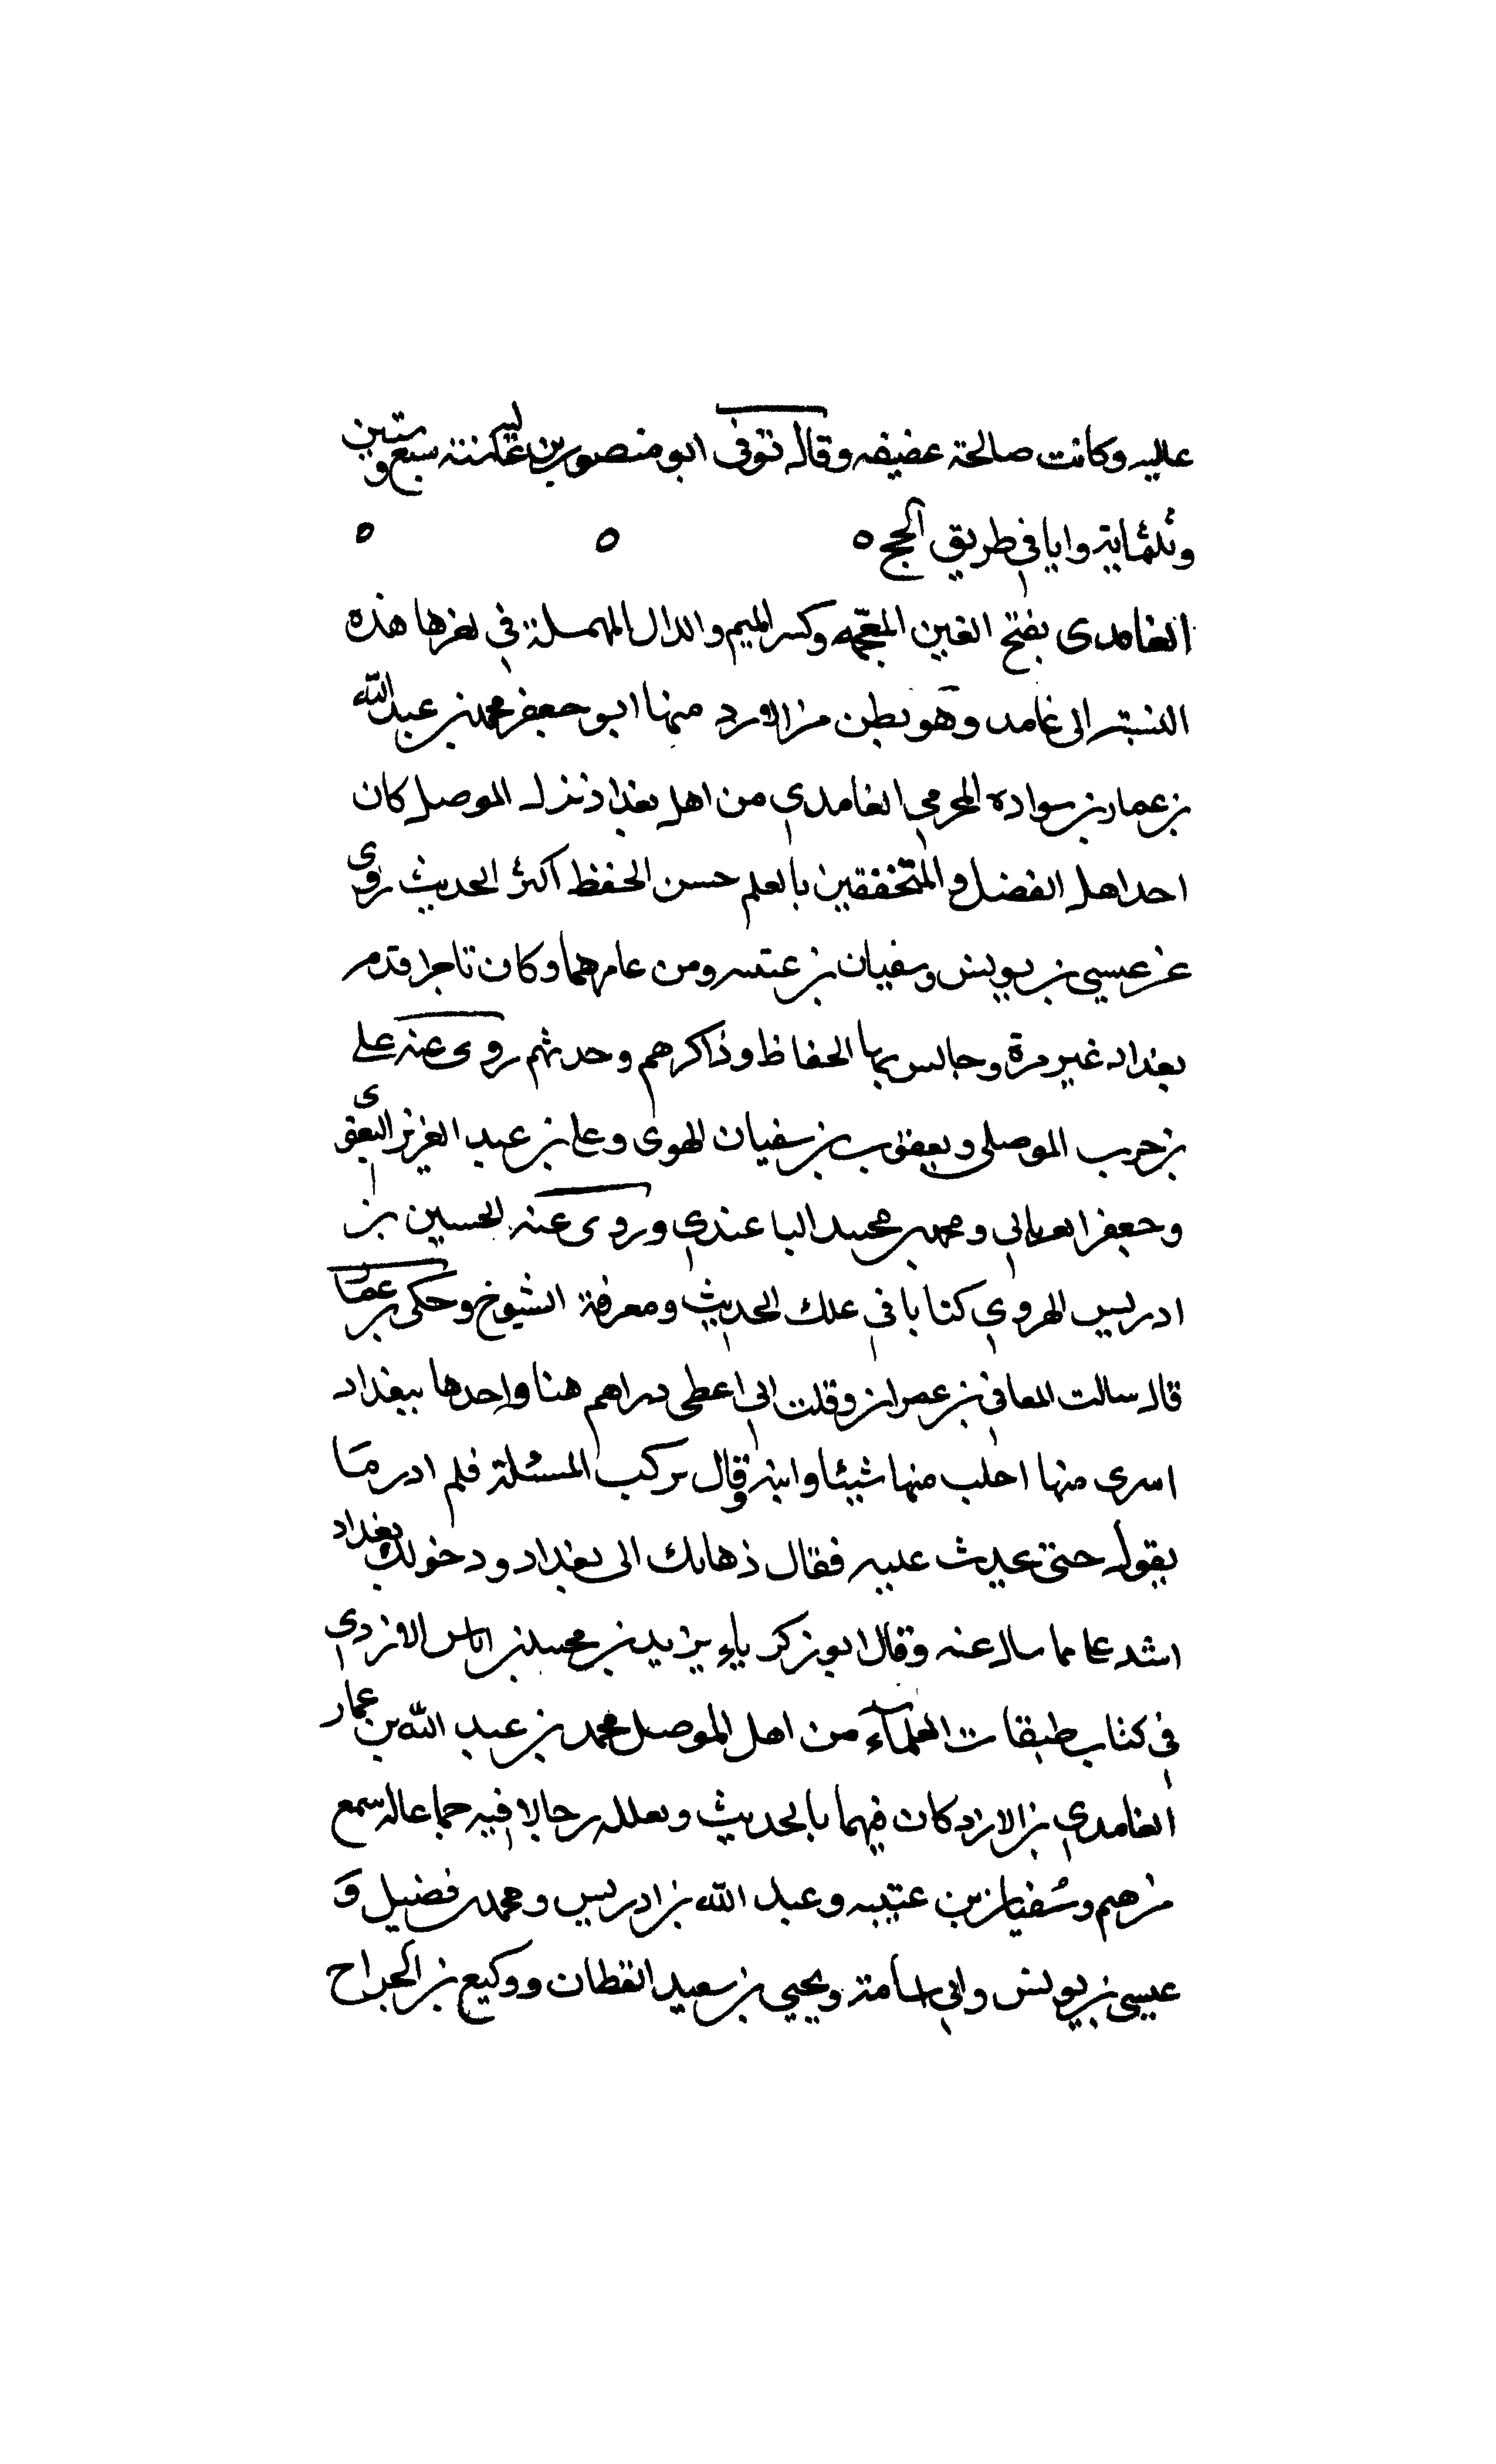 عليه وكانت صالحة عفيفه وقال توفى ابو منصور بن سنة سبع وستين
وثلثماية وانا فى طريق الحج ه ه ه
الغامدى بفتح الغين المعجمه وكسر الميم والدال المهملة فى اخرها هذه
النسبة الى غامد وهو بطن من الازد منها ابو جعفر محمد بن عبد الله
بن عمار بن سواده المخرمى الغامدي من اهل بغداد نزل الموصل كان
احد اهل الفضل والمتحققين بالعلم حسن الحفظ اكثر الحديث روى
عن عيسى بن يونس وسفيان بن عينيه ومن عاصرهما وكان تاجرا قدم
بغداد غير مرة وجالس بها الحفاظ وذاكرهم وحدثهم روى عنه على
بن حرب الموصلى ويعقوب بن سفيان وعلى بن عبد العزيز البغوى
وجعفر الفريابى ومحمد بن محمد الباغندى وروى عنه الحسين بن
ادريس الهروي كتابا فى علل الحديث ومعرفة الشيوخ وحكى بن عمار
قال سالت المعافى بن عمران وقلت انى اعطى دراهم هنا واخذها ببغداد
اشرى منها احلب منها شيئا وقال تركب المسئلة فلم ادر ما
يقول حتى فقال ذهابك الى بغداد ودخولك بغداد
اشد على مما سال عنه وقال ابو زكرياء يزيد بن محمد بن اياس الازدى
فى كتاب طبقات العلمآء من اهل الموصل محمد بن عبد الله بن عمار
الغامدى من الازد كان فهما بالحديث وبعلله رحالا فيه جماعا له سمع
من هشيم وسفيان بن عيينه وعبد الله بن ادريس ومحمد بن فضيل و
عيسى بن يونس وابى اسامة ويحيى بن سعيد القطان ووكيع بن الجراح